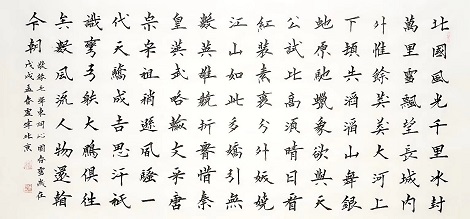 北國風光千里冰封
萬里雪飄望長城內
外惟餘莽莽大河上
下頓失滔滔山舞銀
蛇原馳蠟象欲與天
公試比高須晴日看
紅裝素裹分外妖嬈
江山如此多嬌引無
數英雄競折腰惜秦
皇漢武略輸文采唐
宗宋祖稍遜風騷一
代天驕成吉思汗祇
識彎弓射大雕俱往
矣數風流人物還看
今朝
敬錄毛澤東詞沁園春雪歲在
戊戌孟春北京